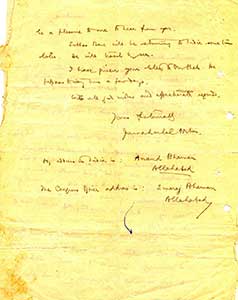 be a pleasure to me to hear from you.
Subhas Bose will be returning to India some time
later. He will
I have given your letter to
in a few days.
With all good wishes and affectionate regards,
Yours fraternally
Jawaharlal Nehru
My address in India is: Anand Bhawan
Allahabad
The Congress Office address is: Swaraj Bhawan
Allahabad